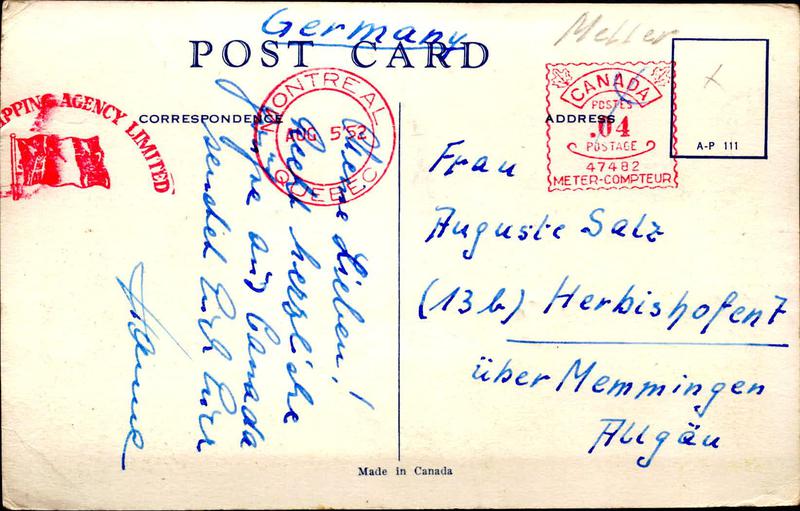 Germany
POST CARD
Meller
CORRESPONDENCE
ADDRESS
PPING AGENCY LIMITED
MONTREAL
AUG 5 52
QUEBEC
CANADA
POSTES
.04
POSTAGE
47482
METER-COMPTEUR
A-P 111
Meine Lieben!
Recht herzliche
Grüße aus Canada
sendet Euch Euer
Frau
Auguste Salz
(13b) Herbishofen 7
über Memmingen
Allgäu
Made in Canada